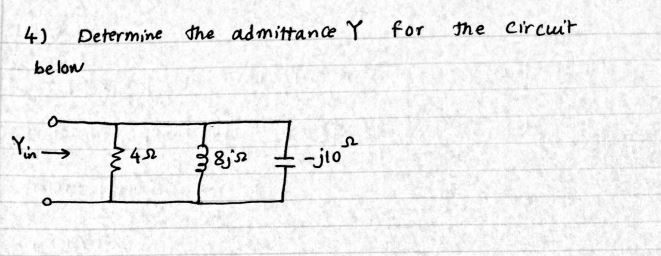 4) Determine the admittance Y for the circuit
below
Yin → 4Ω 8jΩ -j10Ω